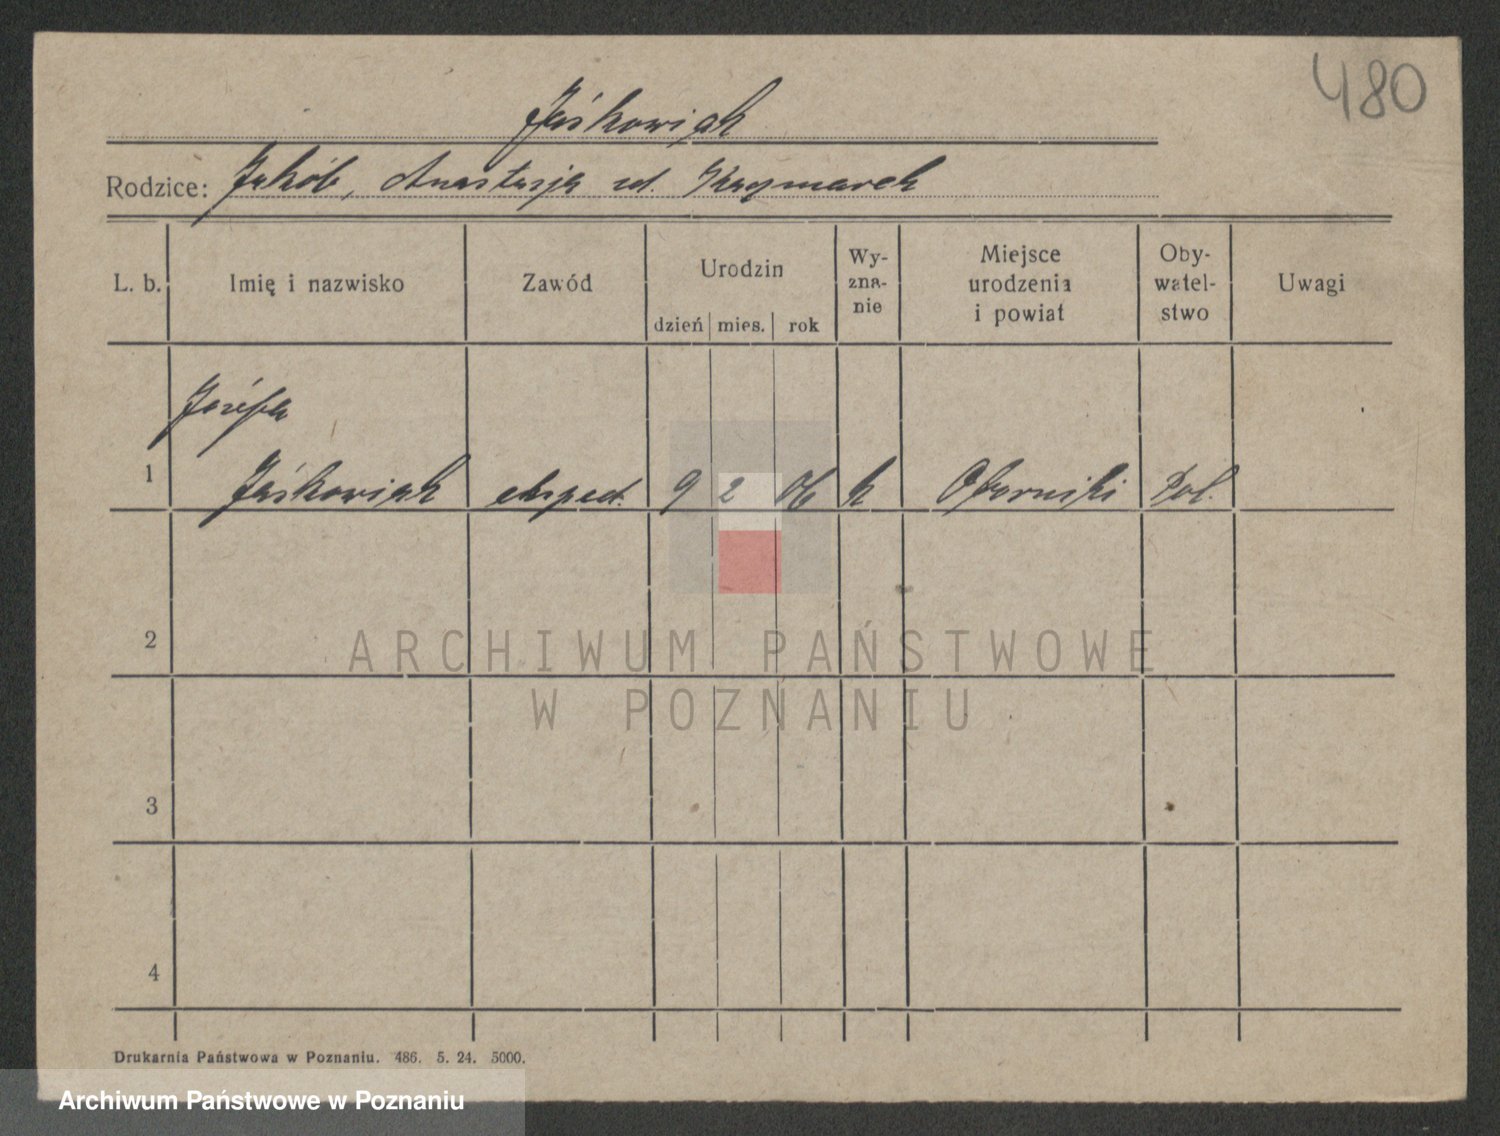 480
Jaśkowiak
Rodzice: Jakób, Anastazja zd. Kaczmarek
L. b.
Imię i nazwisko
Zawód
Urodzin
dzień mies. rok
Wy-
zna-
nie
Miejsce
urodzenia
i powiat
Oby-
watel-
stwo
Uwagi
Józefa
1 Jaśkowiak eksped. 9 2 06 k Oborniki Pol.
2
3
4
ARCHIWUM PAŃSTWOWE
W POZNANIU
Drukarnia Państwowa w Poznaniu. 486. 5. 24. 5000.
Archiwum Państwowe w Poznaniu